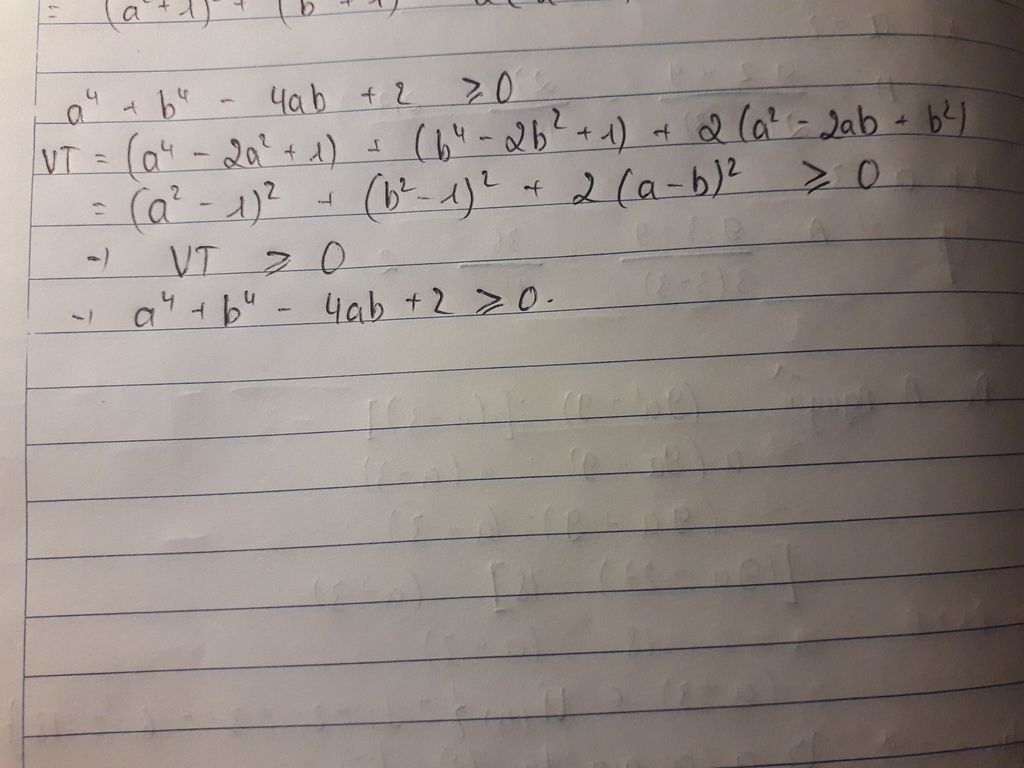 a⁴ + b⁴ - 4ab + 2 ≥ 0
VT = (a⁴ - 2a² + 1) + (b⁴ - 2b² + 1) + 2(a² - 2ab + b²)
= (a² - 1)² + (b² - 1)² + 2(a - b)² ≥ 0
→ VT ≥ 0
→ a⁴ + b⁴ - 4ab + 2 ≥ 0.